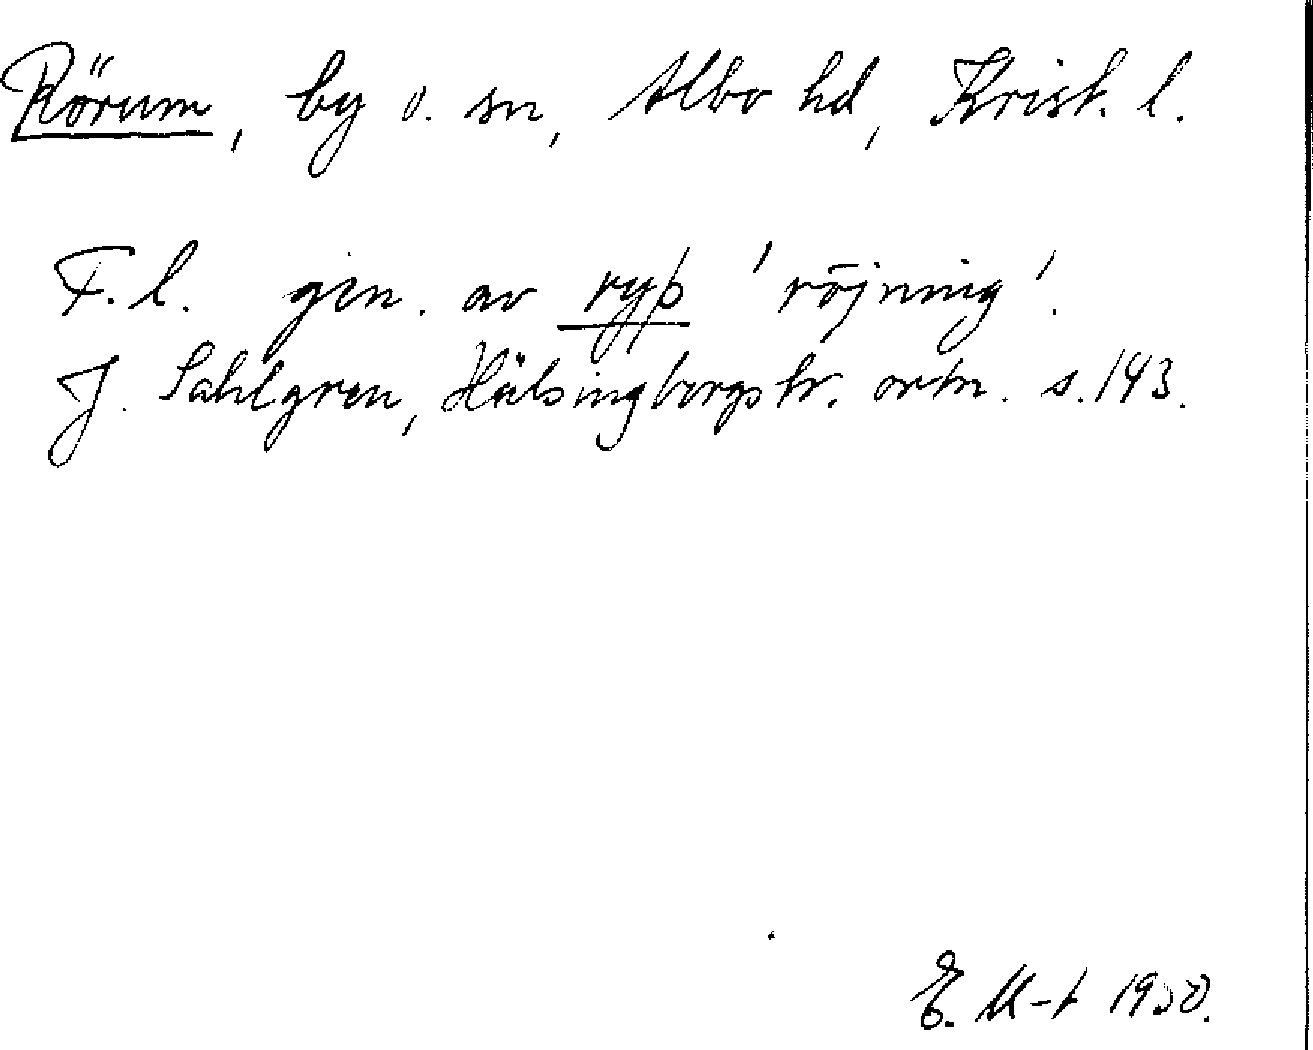 Rörum, by o. sn, Albo hd, Krist. l.
F. l. gen. av ryþ 'röjning'.
J. Sahlgren, Hälsingborgstr. ortn. s. 143.
E. M-t 1930.